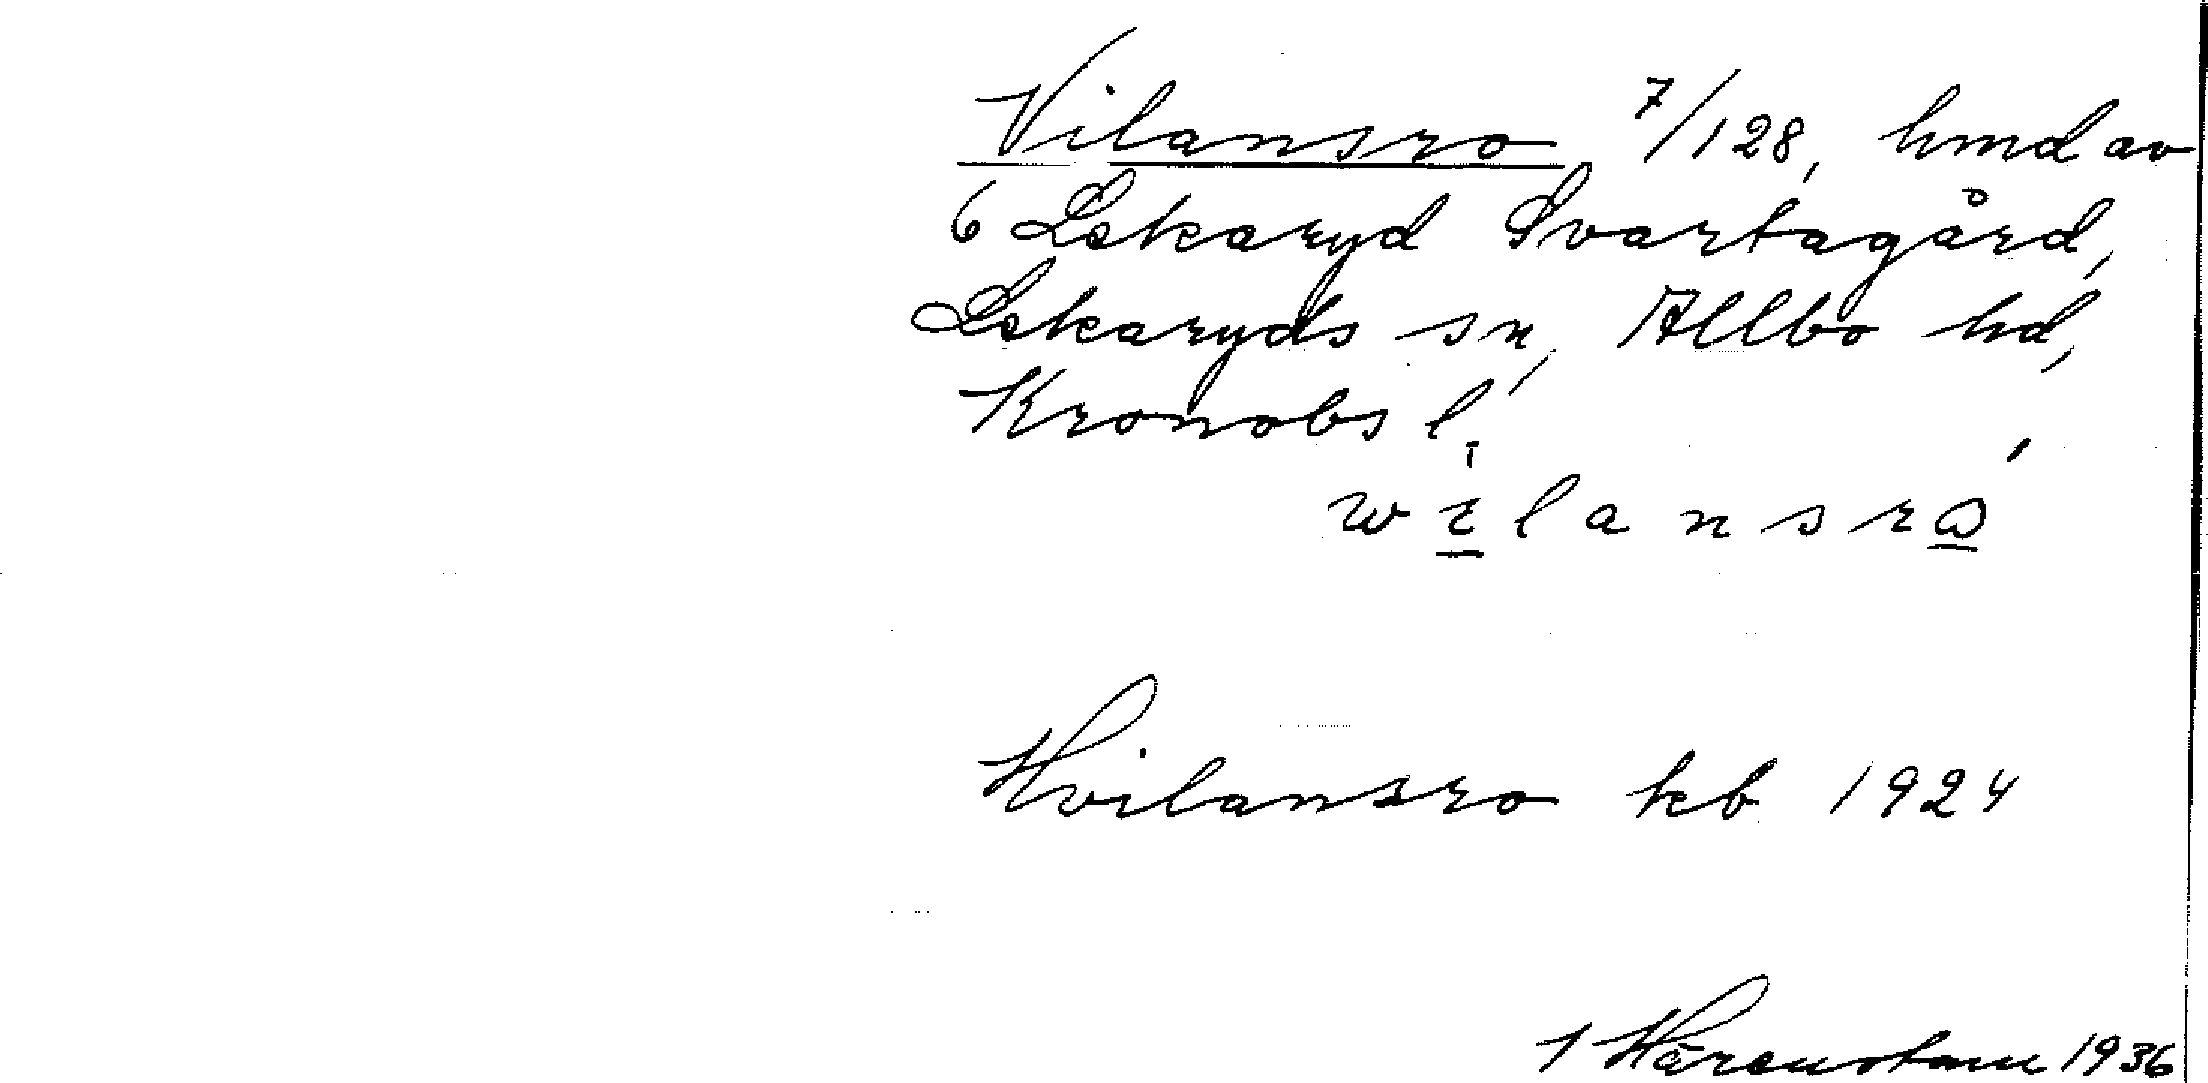 Vilansro 7/128, hmd av
6 Lekaryd Svartagård,
Lekaryds sn, Allbo hd,
Kronobs l.
wilansrω
Hvilansro kb 1924
1936